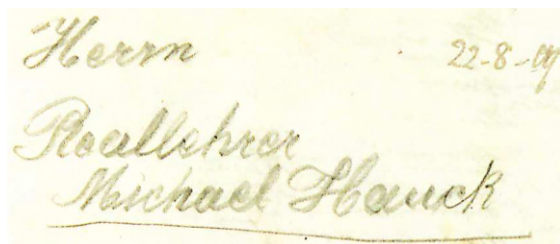 Herrn 22-8-09
Reallehrer
Michael Hauck